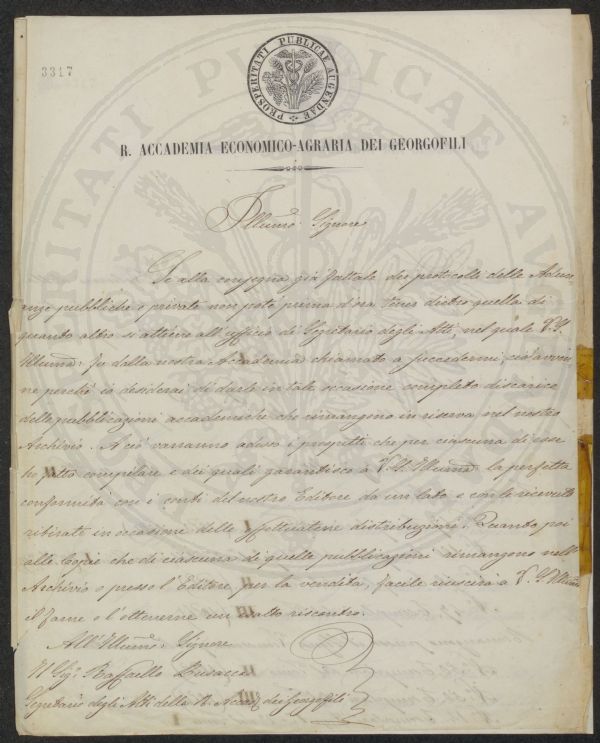 3317
PROSPERITATI PUBLICAE AUGENDAE
R. ACCADEMIA ECONOMICO-AGRARIA DEI GEORGOFILI
Illumo: Signore
Se alla consegna già fattale dei protocolli delle Adun-
anze pubbliche e private non potè prima d'ora tener dietro quella di
quanto altro si attiene all'ufficio di Segretario degli Atti, nel quale V. S.
Illuma: fu dalla nostra Accademia chiamato a succedermi, ciò avven-
ne perchè io desiderai di darle in tale occasione completo discarico
delle pubblicazioni accademiche che rimangono in riserva nel nostro
Archivio. A ciò varranno adesso i prospetti che per ciascuna di esse
ho fatto compilare e dei quali garantisco a V. S. Illuma: la perfetta
conformità con i conti del nostro Editore da un lato e con le ricevute
ritirate in occasione delle effettuatene distribuzioni. Quanto poi
alle Copie che di ciascuna di quelle pubblicazioni rimangono nell'
Archivio o presso l'Editore per la vendita, facile riuscirà a V. S. Illuma
il farne o l'ottenerne un esatto riscontro.
All'Illumo: Signore
Il Sig: Raffaello Busacca
Segretario degli Atti della R. Accad: dei Georgofili